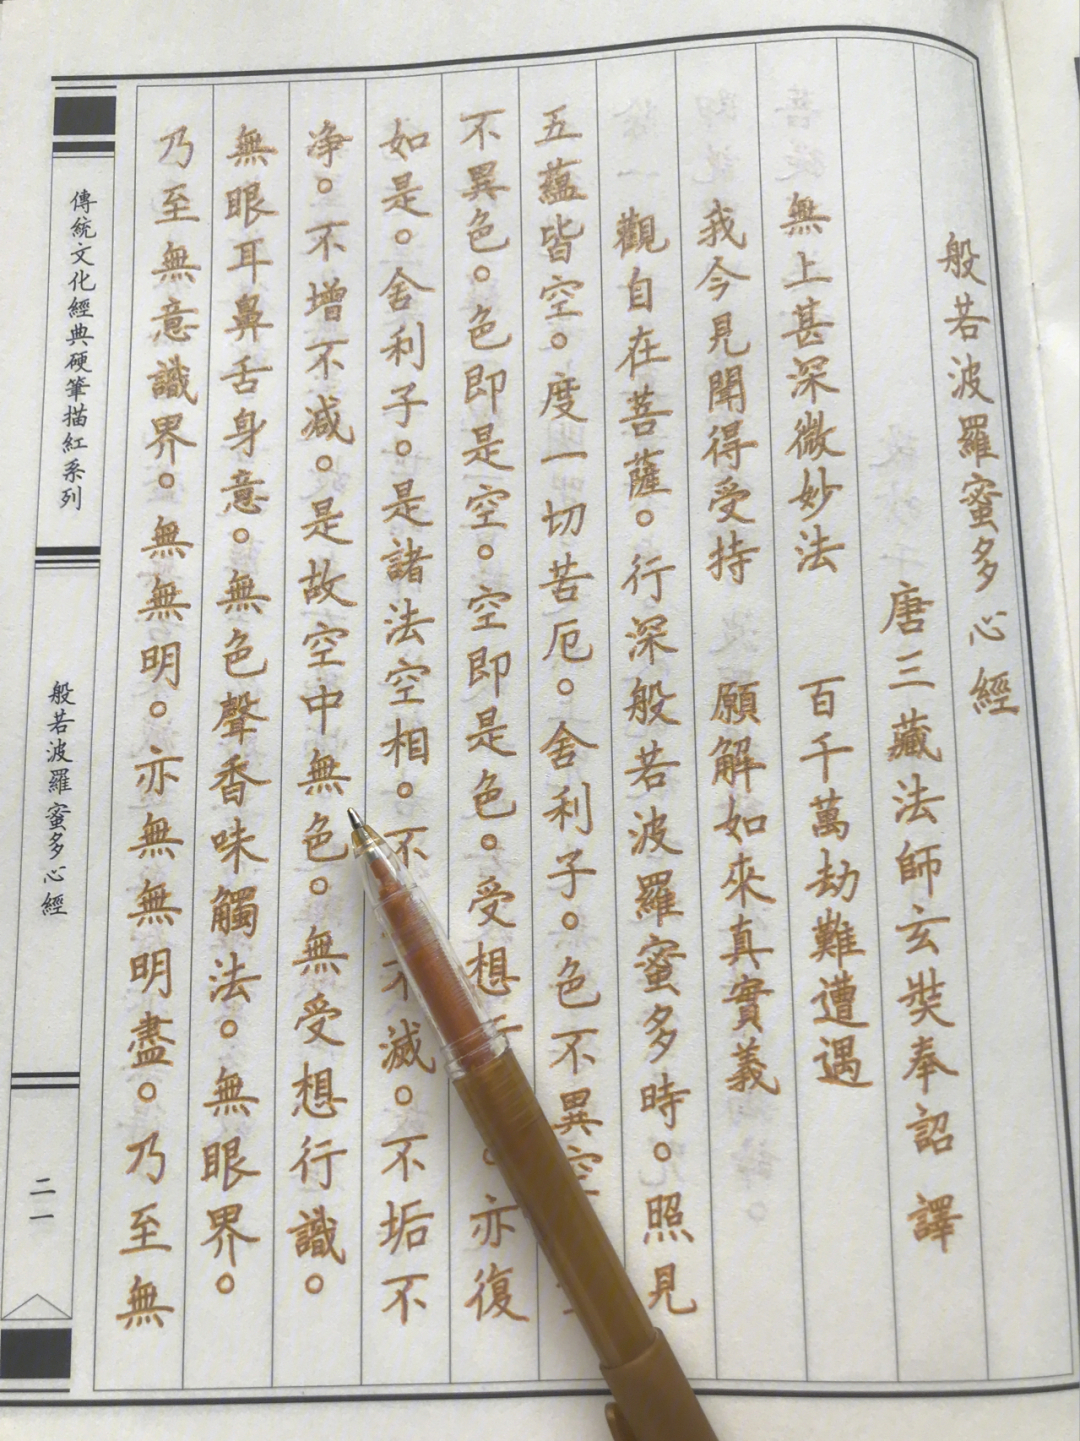 般若波羅蜜多心經
唐三藏法師玄奘奉詔 譯
無上甚深微妙法 百千萬劫難遭遇
我今見聞得受持 願解如來真實義
觀自在菩薩。行深般若波羅蜜多時。照見
五蘊皆空。度一切苦厄。舍利子。色不異空
不異色。色即是空。空即是色。受想 。亦復
如是。舍利子。是諸法空相。不 不滅。不垢不
净。不增不减。是故空中無色。無受想行識。
無眼耳鼻舌身意。無色聲香味觸法。無眼界。
乃至無意識界。無無明。亦無無明盡。乃至無
傳統文化經典硬筆描紅系列
般若波羅蜜多心經
二一